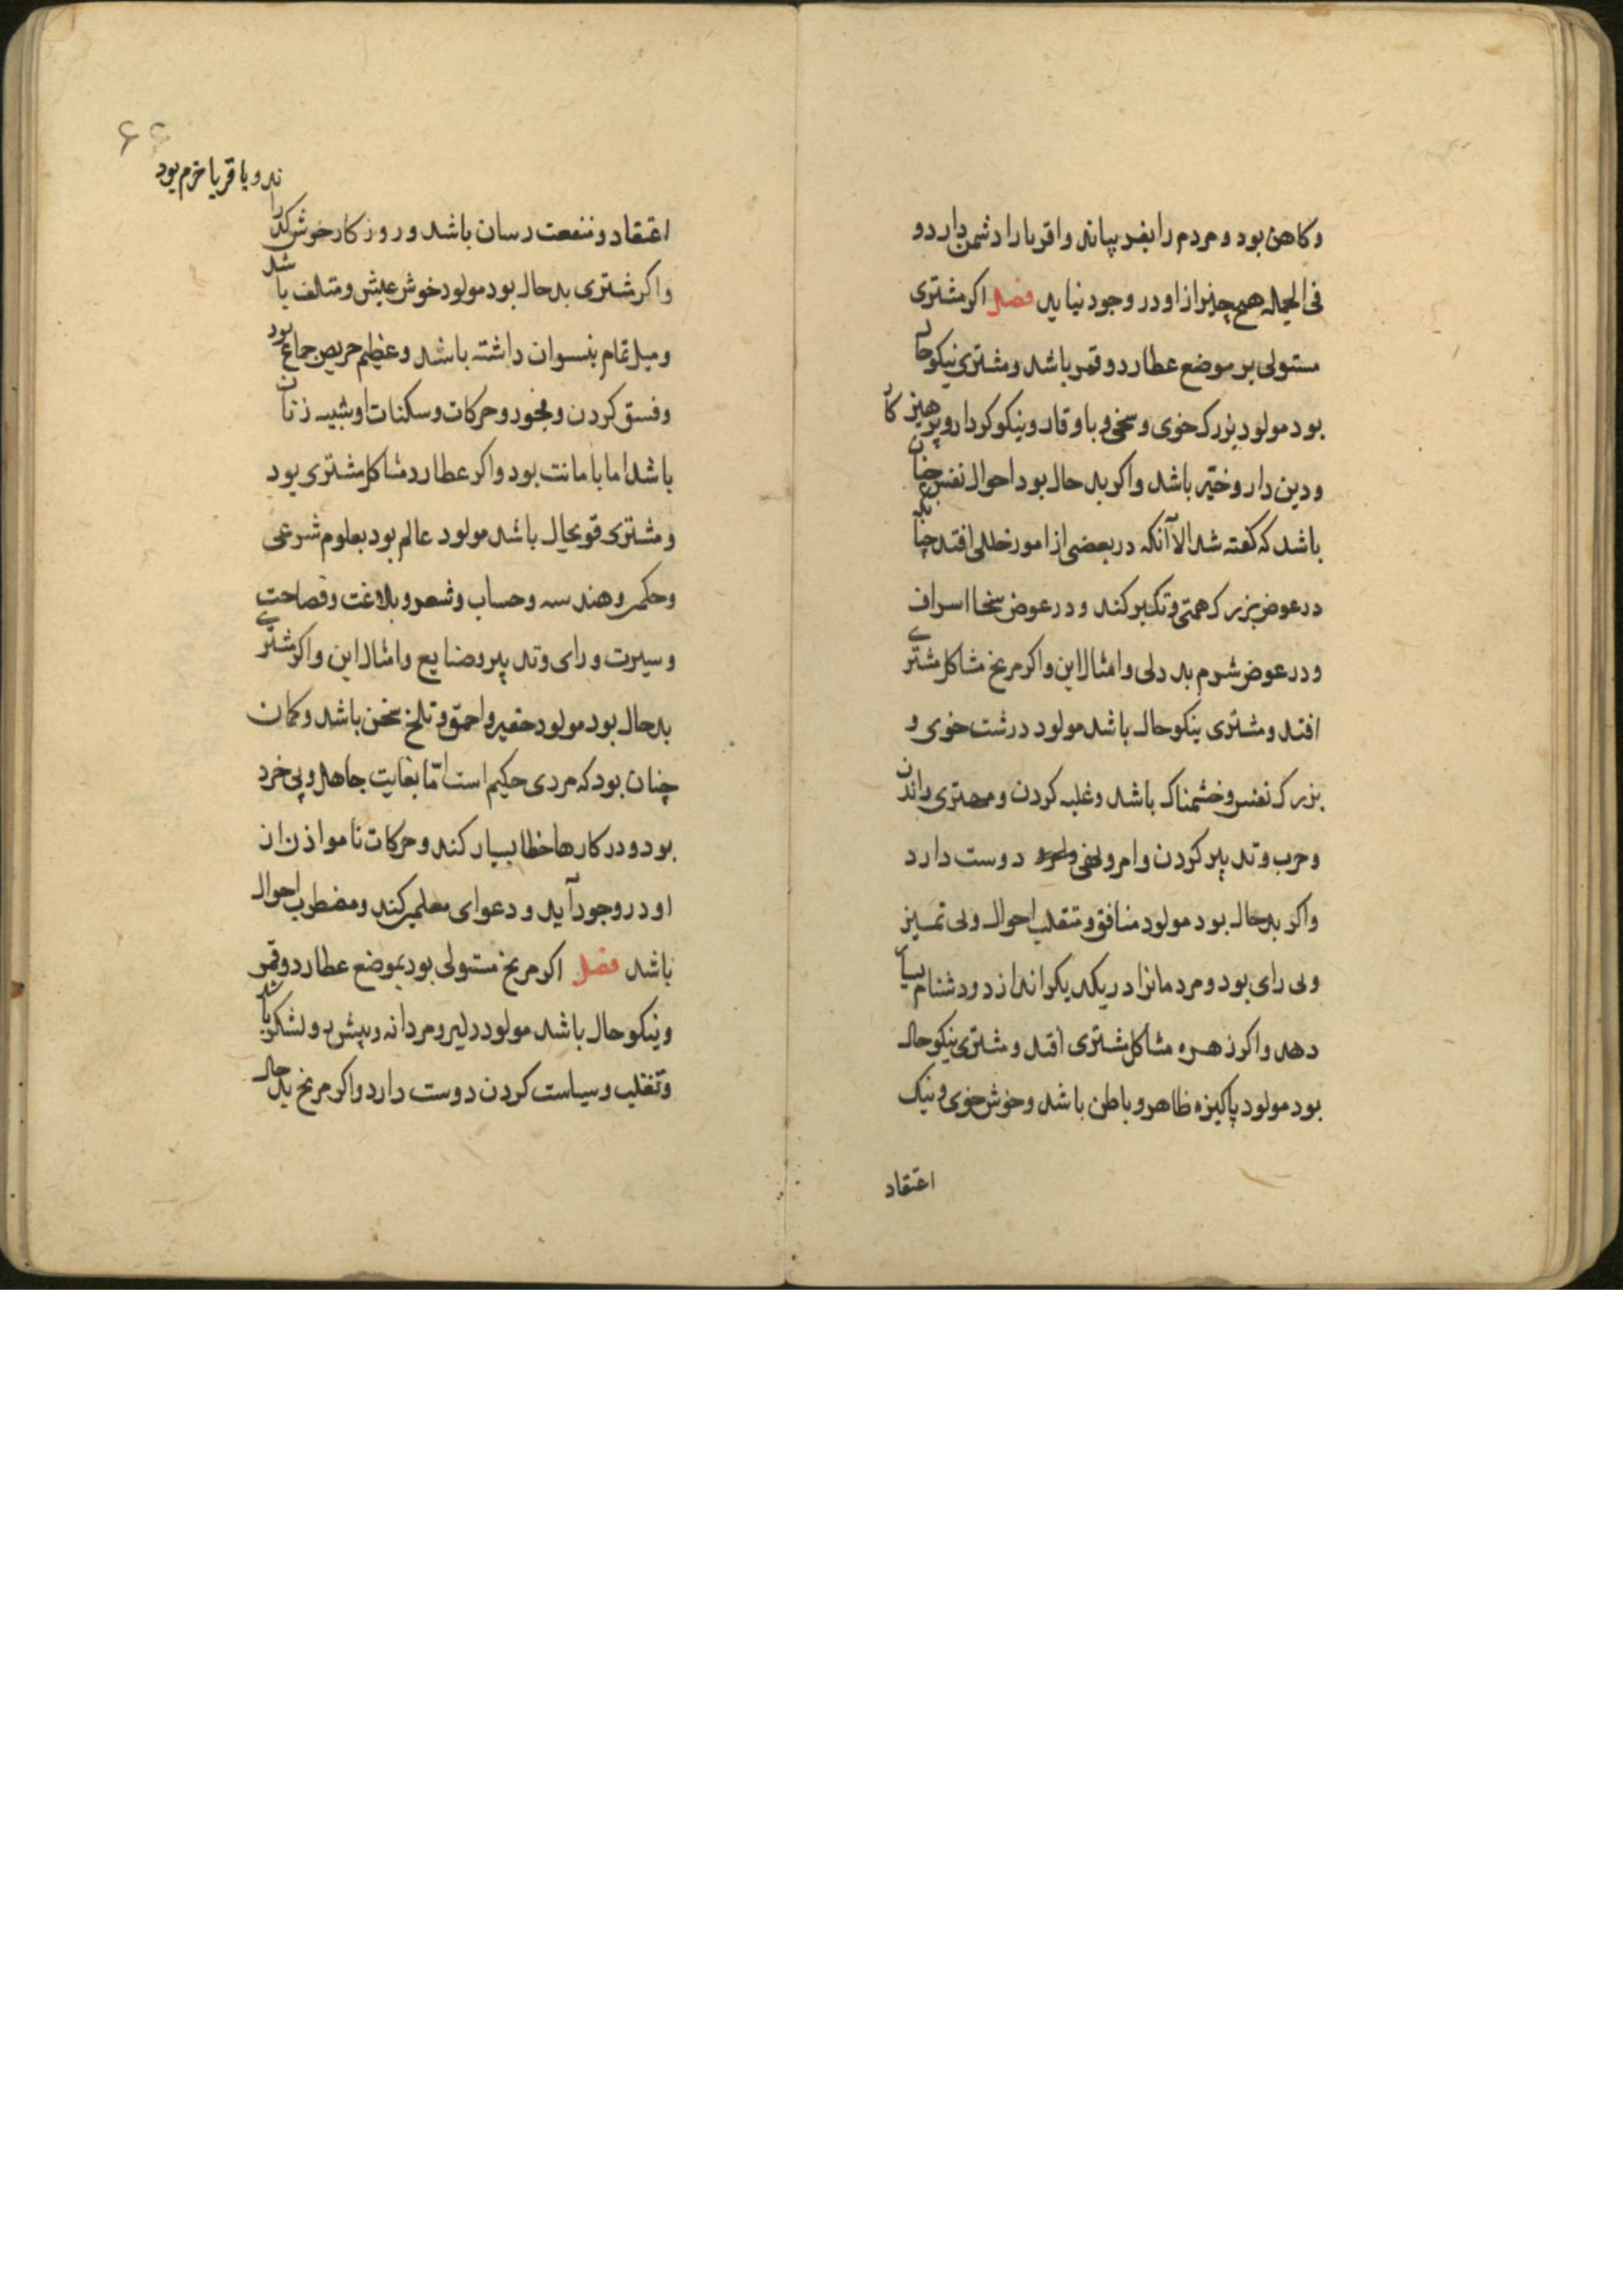 وکاهن بود و مردم را بفریباند واقربا را دشمن دارد و
فی الجمله هیچ چیز از او در وجود نیاید فصل اکر مشتری
مستولی بر موضع عطارد و قمر باشد و مشتری نیکو حال
بود مولود بزرک خوی و سخی و با وقار و نیکو کردار و پرهیز کار
و دین دار و خیّر باشد واکر بد حال بود احوال نفس چنان
باشد که کفته شد الا آنکه در بعضی از امور خللی افتد چنانکه
در عوض بزرک همتی و تکبر کند و در عوض سخا اسراف
و در عوض شرم بد دلی و امثال این واکر مریخ مشاکل مشتری
افتد و مشتری نیکو حال باشد مولود درشت خوی و
بزرک نفس و خشمناک باشد و غلبه کردن و مهتری راندن
و حرب و تدبیر کردن و امر و نهی دوست دارد
واکر بدحال بود مولود منافق و متقلب احوال و بی تمییز
و بی رای بود و مردمانرا در یکدیکر اندازد و دشنام بسیار
دهد واکر زهره مشاکل مشتری افتد و مشتری نیکو حال
بود مولود پاکیزه ظاهر و باطن باشد و خوش خوی و نیک
اعتقاد
۶۶
ند و با قربا خرم بود
اعتقاد و منفعت رسان باشد و روزکار خوش کذرا
واکر مشتری بدحال بود مولود خوش عیش و متلف باشد
و میل تمام بنسوان داشته باشد و عظیم حریص جماع بود
و فسق کردن و فجور و حرکات و سکنات او شبیه زنان
باشد اما با مانت بود واکر عطارد مشاکل مشتری بود
و مشتری قویحال باشد مولود عالم بود بعلوم شرعی
و حکمی و هندسه و حساب و شعر و بلاغت و فصاحت
و سیرت و رای و تدبیر و صنایع و امثال این واکر مشتری
بدحال بود مولود حقیر و احمق و تلخ سخن باشد و کمان
چنان بود که مردی حکیم است امّا بغایت جاهل و بی خرد
بود و در کارها خطا بسیار کند و حرکات ناموازن از
او در وجود آید و دعوای معلمی کند و مضطرب احوال
باشد فصل اکر مریخ مستولی بود بموضع عطارد و قمر
و نیکو حال باشد مولود دلیر و مردانه و پیش رو لشکر باشد
و تغلیب و سیاست کردن دوست دارد واکر مریخ بد حال